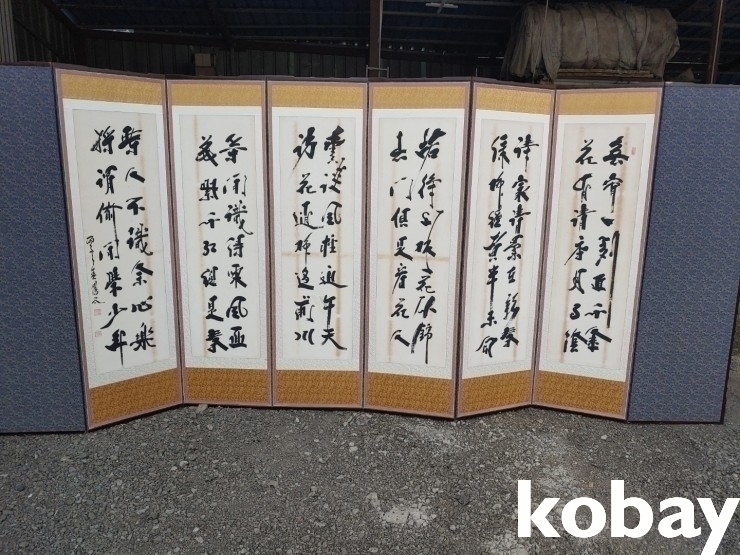 春宵一刻直千金
花有清香月有陰
詩家清景在新春
綠柳纔黃半未勻
若待上林花似錦
出門俱是看花人
雲淡風輕近午天
訪花隨柳過前川
等閒識得東風面
萬紫千紅總是春
時人不識余心樂
將謂偷閒學少年
kobay